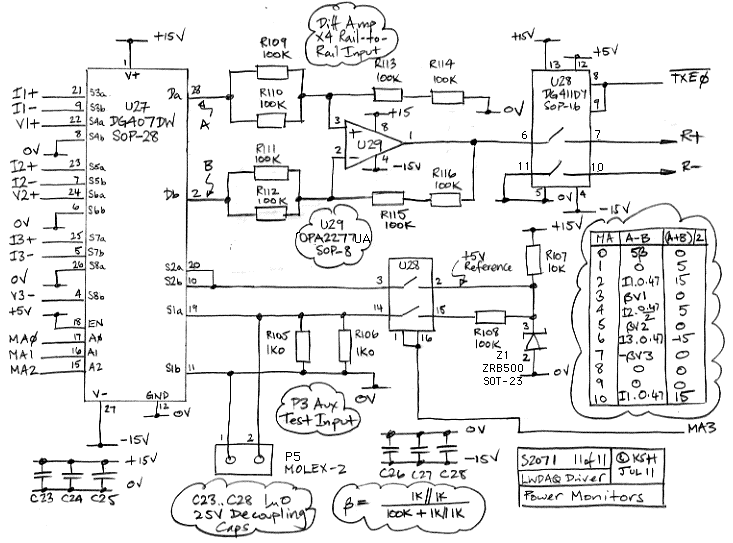 Diff Amp
X4 Rail-to-
Rail Input
+15V
1
V+
U27
DG407DW
SOP-28
I1+ 21 S3a
I1- 9 S3b
V1+ 22 S4a
0V 8 S4b
I2+ 23 S5a
I2- 7 S5b
V2+ 24 S6a
0V 6 S6b
I3+ 25 S7a
I3- 5 S7b
0V 26 S8a
V3- 4 S8b
+5V
18 EN
MA0 17 A0
MA1 16 A1
MA2 15 A2
V-
GND
27
12
0V
-15V
Da 28
A
Db 2
B
S2a 20
S2b 10
S1a 19
S1b 11
R109
100K
R110
100K
R111
100K
R112
100K
R113
100K
R114
100K
0V
+15
3
8
1
2
4
U29
-15V
R115
100K
R116
100K
U29
OPA2277UA
SOP-8
+15V
+5V
13
12
U28
DG411DY
SOP-16
8
9
TXE0
6
7
R+
11
10
R-
5
0V
4
-15V
U28
3
2
14
15
1
16
+5V
Reference
+15V
R107
10K
R108
100K
3
2
Z1
ZRB500
SOT-23
0V
R105
1K0
R106
1K0
0V
P3 Aux
Test Input
1 2
P5
MOLEX-2
MA A-B (A+B)/2
0 5β 0
1 0 5
2 I1.0.47 15
3 βV1 0
4 I2.0.47/2 5
5 βV2 0
6 I3.0.47 -15
7 -βV3 0
8 0 0
9 0 0
10 I1.0.47 15
MA3
+15V
0V
C23 C24 C25
C23..C28 1u0
25V Decoupling
Caps
0V
-15V
C26 C27 C28
β = 1K//1K
100K + 1K//1K
S2071 11of11
LWDAQ Driver
© KSH
JUL 11
Power Monitors